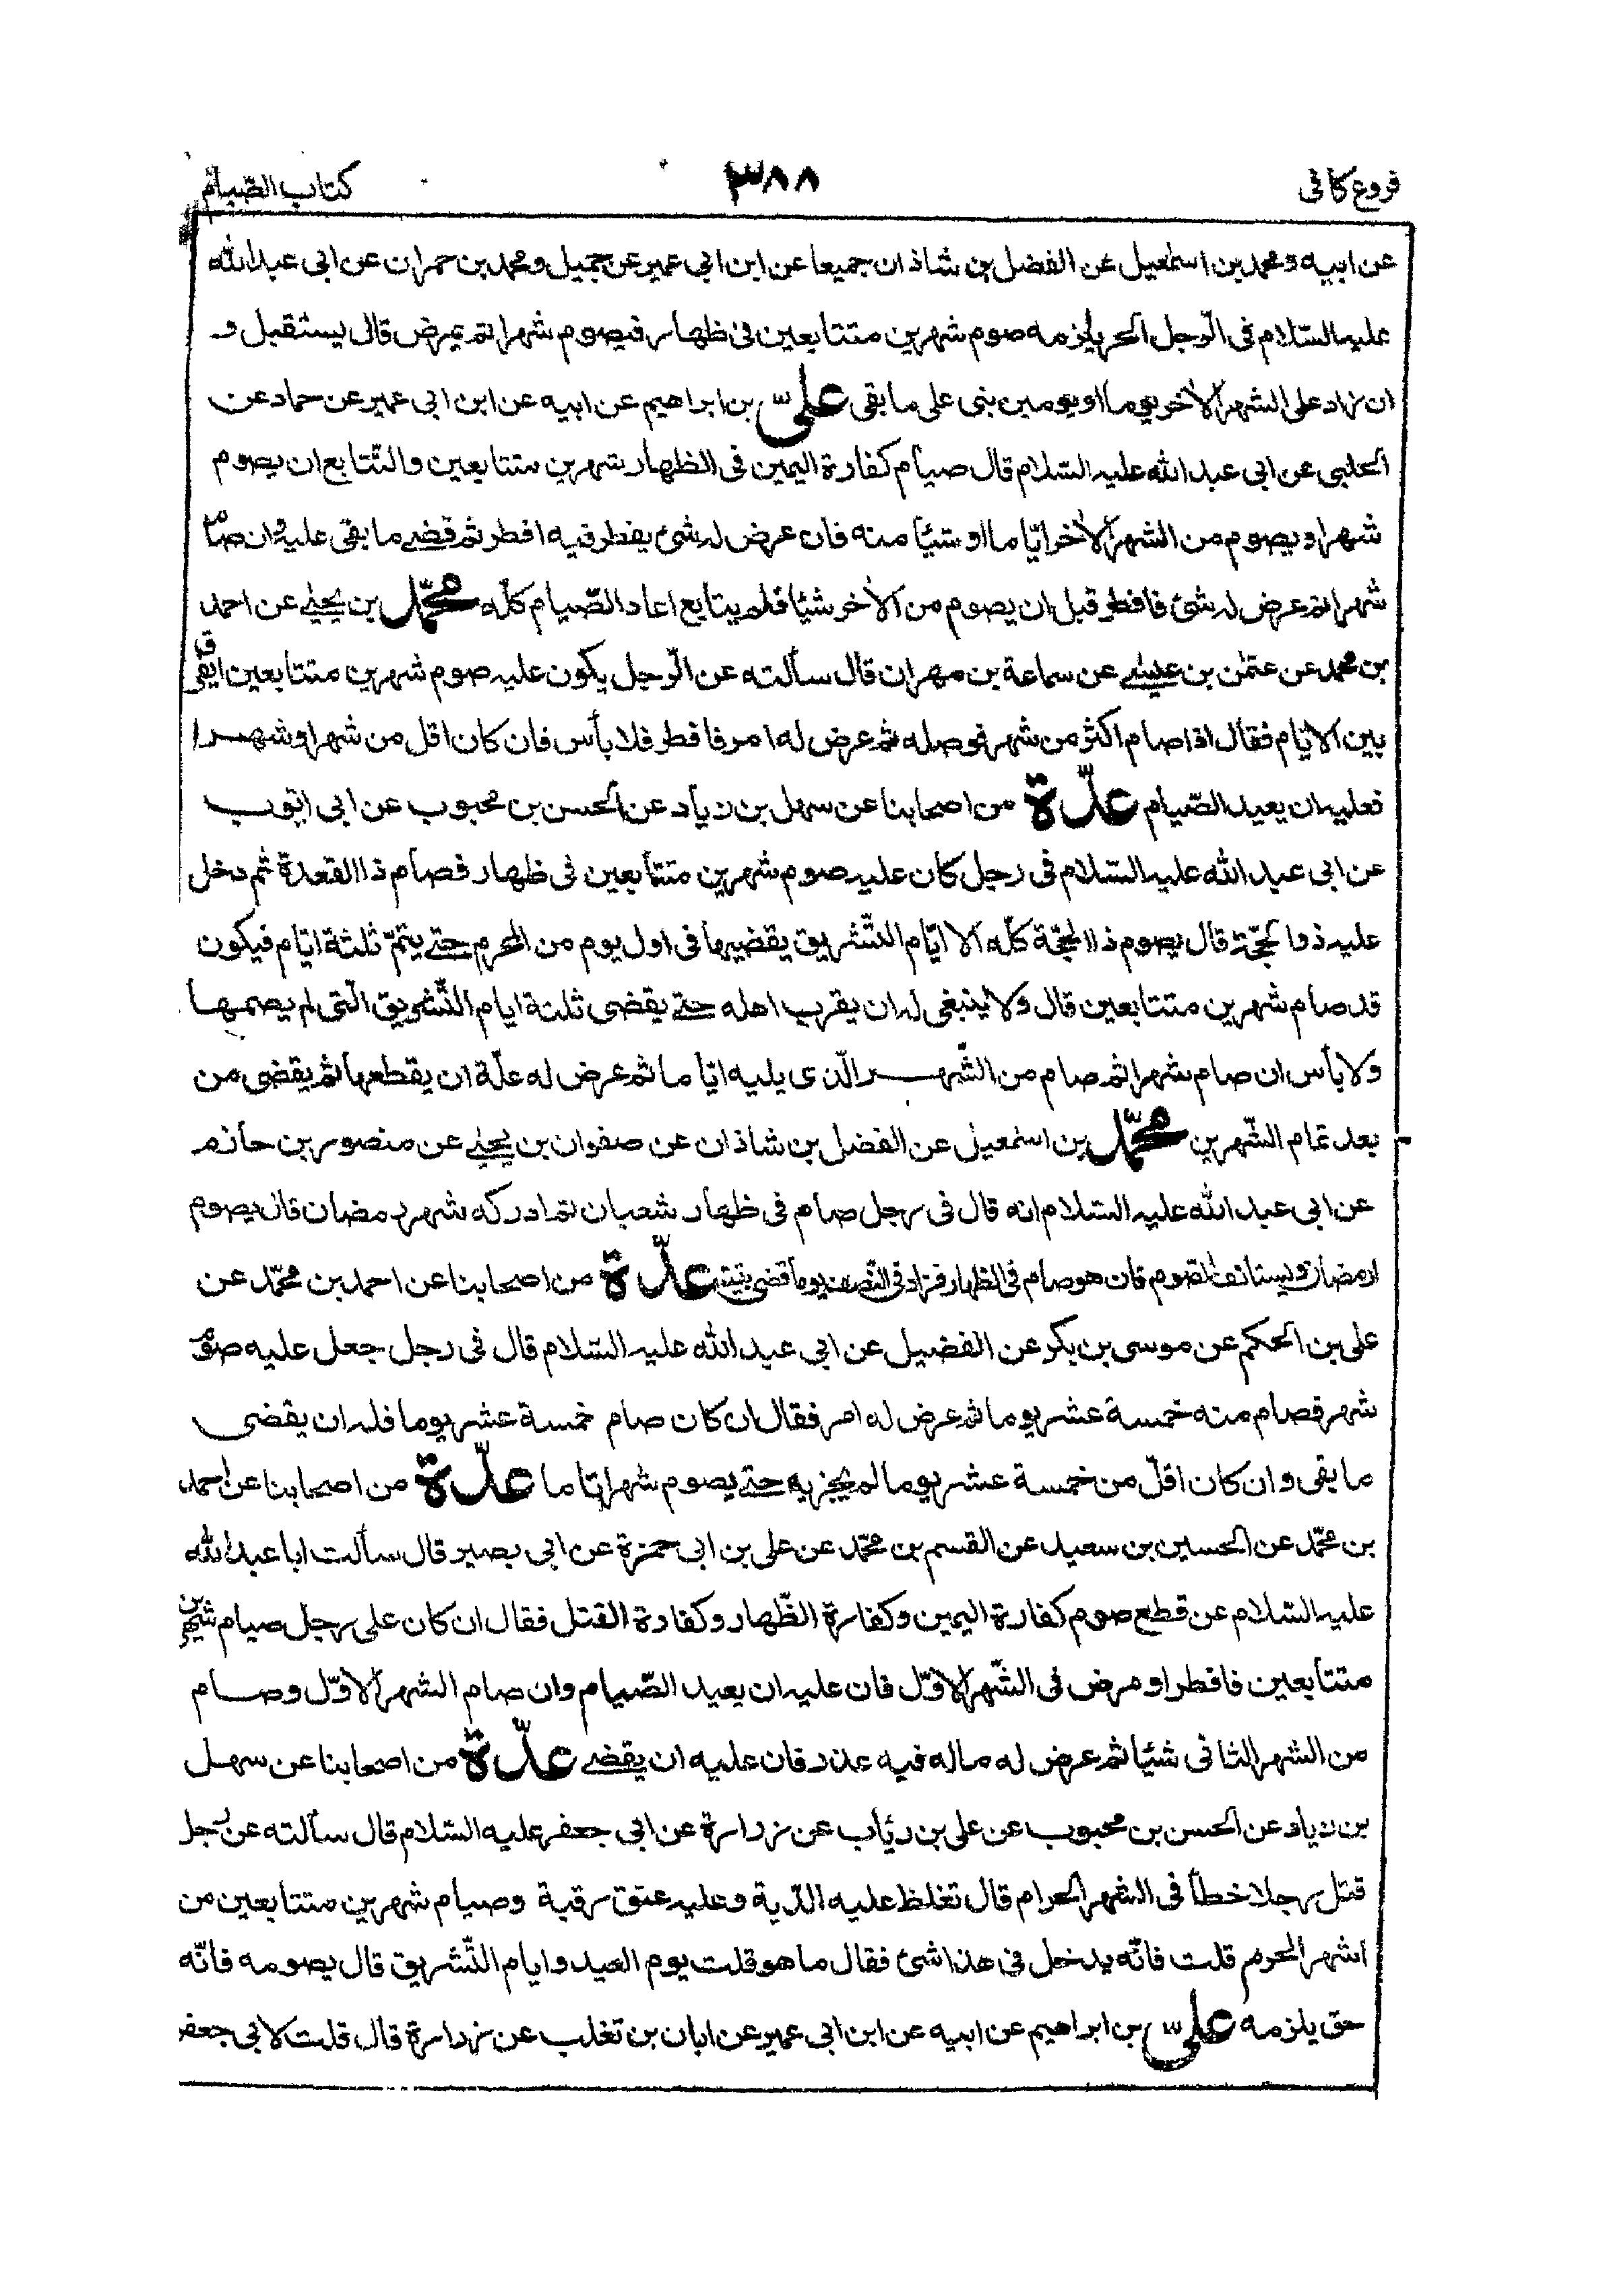 فروع كافى
٣٨٨
كتاب الصيام
عن ابيه ومحمد بن اسمٰعيل عن الفضل بن شاذان جميعا عن ابن ابى عمير عن جميل ومحمد بن حمران عن ابى عبدالله
عليه السّلام فى الرّجل الحر يلزمه صوم شهرين متتابعين فى ظهار فيصوم شهرا ثم يمرض قال يستقبل و
ان زاد على الشهر الاخر يوما او يومين بنى على ما بقى علىّ بن ابراهيم عن ابيه عن ابن ابى عمير عن حماد عن
الحلبى عن ابى عبد الله عليه السّلام قال صيام كفارة اليمين فى الظهار شهرين متتابعين والتّتابع ان يصوم
شهرا ويصوم من الشهر الاخر ايّاما او شيئا منه فان عرض له شئ يفطر فيه افطر ثم قضى ما بقى عليه وان صام
شهرا ثم عرض له شئ فافطر قبل ان يصوم من الاخر شيئا فلم يتابع اعاد الصّيام كلّه محمّد بن يحيى عن احمد
بن محمد عن عثمٰن بن عيسى عن سماعة بن مهران قال سألته عن الرّجل يكون عليه صوم شهرين متتابعين ايفرق
بين الايّام فقال اذا صام اكثر من شهر فوصله ثم عرض له امر فافطر فلا بأس فان كان اقل من شهر او شهرا
فعليه ان يعيد الصّيام عدّة من اصحابنا عن سهل بن زياد عن الحسن بن محبوب عن ابى ايّوب
عن ابى عبد الله عليه السّلام فى رجل كان عليه صوم شهرين متتابعين فى ظهار فصام ذا القعدة ثم دخل
عليه ذو الحجّة قال يصوم ذا الحجّة كلّه الا ايّام التّشريق يقضيها فى اول يوم من المحرم حتى يتمّ ثلثة ايّام فيكون
قد صام شهرين متتابعين قال ولا ينبغى له ان يقرب اهله حتى يقضى ثلثة ايام التّشريق الّتى لم يصمها
ولا بأس ان صام شهرا ثم صام من الشّهر الّذى يليه ايّاما ثم عرض له علّة ان يقطعها ثم يقضى من
بعد تمام الشّهرين محمّد بن اسمعيل عن الفضل بن شاذان عن صفوان بن يحيى عن منصور بن حازم
عن ابى عبد الله عليه السّلام انه قال فى رجل صام فى ظهار شعبان ثم ادركه شهر رمضان قال يصوم
رمضان ويستانف الصّوم فان هو صام فى الظهار فزاد فى النّصف يوما قضى بقيته عدّة من اصحابنا عن احمد بن محمّد عن
على بن الحكم عن موسى بن بكر عن الفضيل عن ابى عبد الله عليه السّلام قال فى رجل جعل عليه صوم
شهر فصام منه خمسة عشر يوما ثم عرض له امر فقال ان كان صام خمسة عشر يوما فله ان يقضى
ما بقى وان كان اقلّ من خمسة عشر يوما لم يجزيه حتى يصوم شهرا تاما عدّة من اصحابنا عن احمد
بن محمّد عن الحسين بن سعيد عن القسم بن محمّد عن على بن ابى حمزة عن ابى بصير قال سألت ابا عبدالله
عليه السّلام عن قطع صوم كفارة اليمين وكفارة الظّهار وكفارة القتل فقال ان كان على رجل صيام شهرين
متتابعين فافطر او مرض فى الشّهر الاوّل فان عليه ان يعيد الصّيام وان صام الشهر الاوّل وصام
من الشهر الثانى شيئا ثم عرض له ماله فيه عذر فان عليه ان يقضى عدّة من اصحابنا عن سهل
بن زياد عن الحسن بن محبوب عن على بن رئاب عن زرارة عن ابى جعفر عليه السّلام قال سألته عن رجل
قتل رجلا خطأ فى الشهر الحرام قال تغلظ عليه الدّية وعليه عتق رقبة وصيام شهرين متتابعين من
اشهر الحرم قلت فانّه يدخل فى هذا شئ فقال ما هو قلت يوم العيد وايام التّشريق قال يصومه فانّه
حق يلزمه علىّ بن ابراهيم عن ابيه عن ابن ابى عمير عن ابان بن تغلب عن زرارة قال قلت لابى جعفر